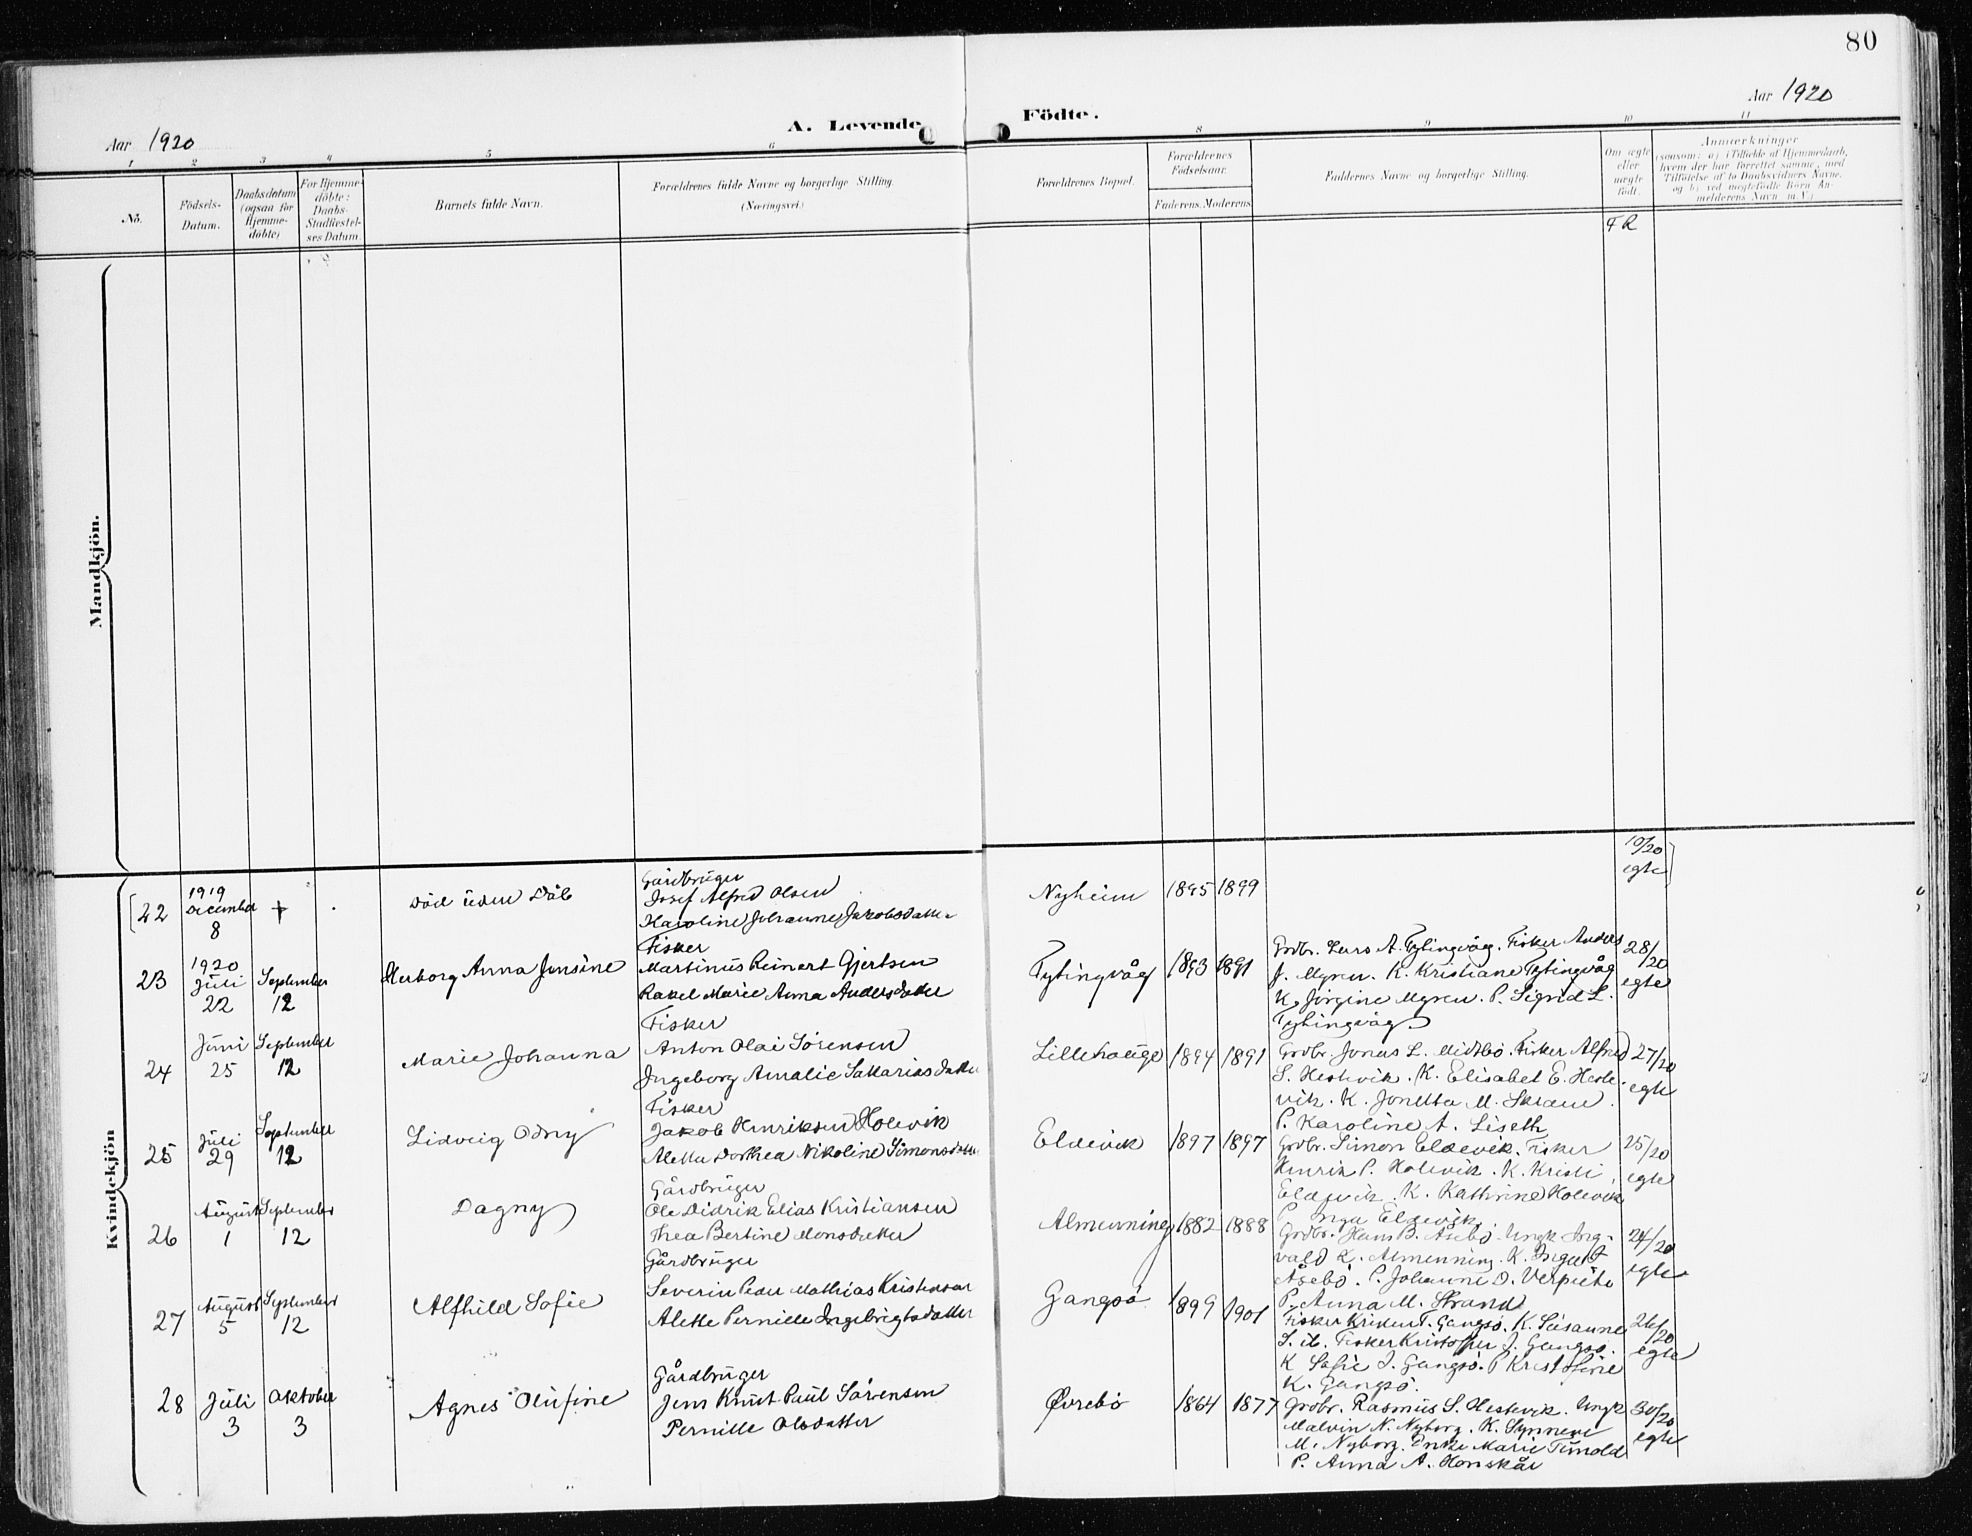 80
Aar 1920
A. Levende Födte.
Aar 1920
1 2 3 4 5 6 8 9 10 11
Nö.
Födsels-
Datum.
Daabsdatum
(ogsaa for
Hjemme-
döbte)
For Hjemme-
döbte:
Daabs-
Stadfæstel-
ses Datum.
Barnets fulde Navn.
Forældrenes fulde Navne og borgerlige Stilling.
(Næringsvei.)
Forældrenes Bopæl.
Forældrenes
Födselsaar.
Faderens. Moderens
Faddernes Navne og borgerlige Stilling.
Om ægte
eller
uægte
födt.
Anmærkninger
(saasom: a) i Tilfælde af Hjemmedaab,
hvem der har forrettet samme, med
Tilföielse af to Daabsvidners Navne,
og b) ved uægtefödte Börn An-
melderens Navn m. V.)
F R
Mandkjön.
Kvindekjön
22
1919
December
8
Död üden Dåb
Gårdbrüger
Josef Alfred Olsen
Karoline Johanne Jakobsdatter
Nyheim
1895 1899
10/20
egte
23
1920
Jüli
22
September
12
Herborg Anna Jensine
Fisker
Martinüs Reinert Gjertsen
Rakel Marie Anna Andersdatter
Tytingvåg
1893 1891
Grdbr. Lars A. Tytingvåg. Fisker Anders
J. Myren. K. Kristiane Tytingvåg
K. Jörgine Myren. P. Sigrid L.
Tytingvåg
28/20
egte
24
Jüni
25
September
12
Marie Johanna
Fisker
Anton Olai Sörensen
Ingeborg Amalie Sakariasdatter
Lillehauge
1894 1891
Grdbr. Jonas L. Midtbö. Fisker Alfred
S. Hestvik. K. Elisabet E. Heste-
vik. K. Jonetta M.
P. Karoline A. Liseth
27/20
egte
25
Jüli
29
September
12
Lidveig Odny
Fisker
Jakob Henriksen Holevik
Aletta Dorthea Nikoline Simonsdatter
Eldevik
1897 1897
Grdbr. Simon Eldevik. Fisker
Henrik P. Holevik. K. Kristi
Eldevik. K. Kathrine Holevik
P. Inga Eldevik.
25/20
egte
26
August
1
September
12
Dagny
Gårdbrüger
Ole Didrik Elias Kristiansen
Thea Bertine Monsdatter
Almenning
1882 1888
Grdbr. Hans B. Åsebö. Ungk. Ing-
vald K. Almenning. K.
Åsebö. P. Johanne D. Verpeide
P. Anna M. Strand
24/20
egte
27
August
5
September
12
Alfhild Sofie
Gårdbrüger
Severin Peder Mathias Kristensen
Alette Pernille Ingebrigtsdatter
Gangsö
1899 1901
Fisker Kristen T. Gangsö. K. Süsanne
S. st. Fisker Kristoffer J. Gangsö.
K Sofie J. Gangsö. P Kristofine
K. Gangsö.
26/20
egte
28
Jüli
3
Oktober
3
Agnes Olüfine
Gårdbrüger
Jens Knut Paul Sörensen
Pernille Olsdatter
Övrebö
1864 1877
Grdbr. Rasmüs S. Hestvik. Ungk
Malvin N. Nyborg. K. Synneve
M. Nyborg. Enke Marie Timold
P. Anna A. Hornskår
30/20
egte